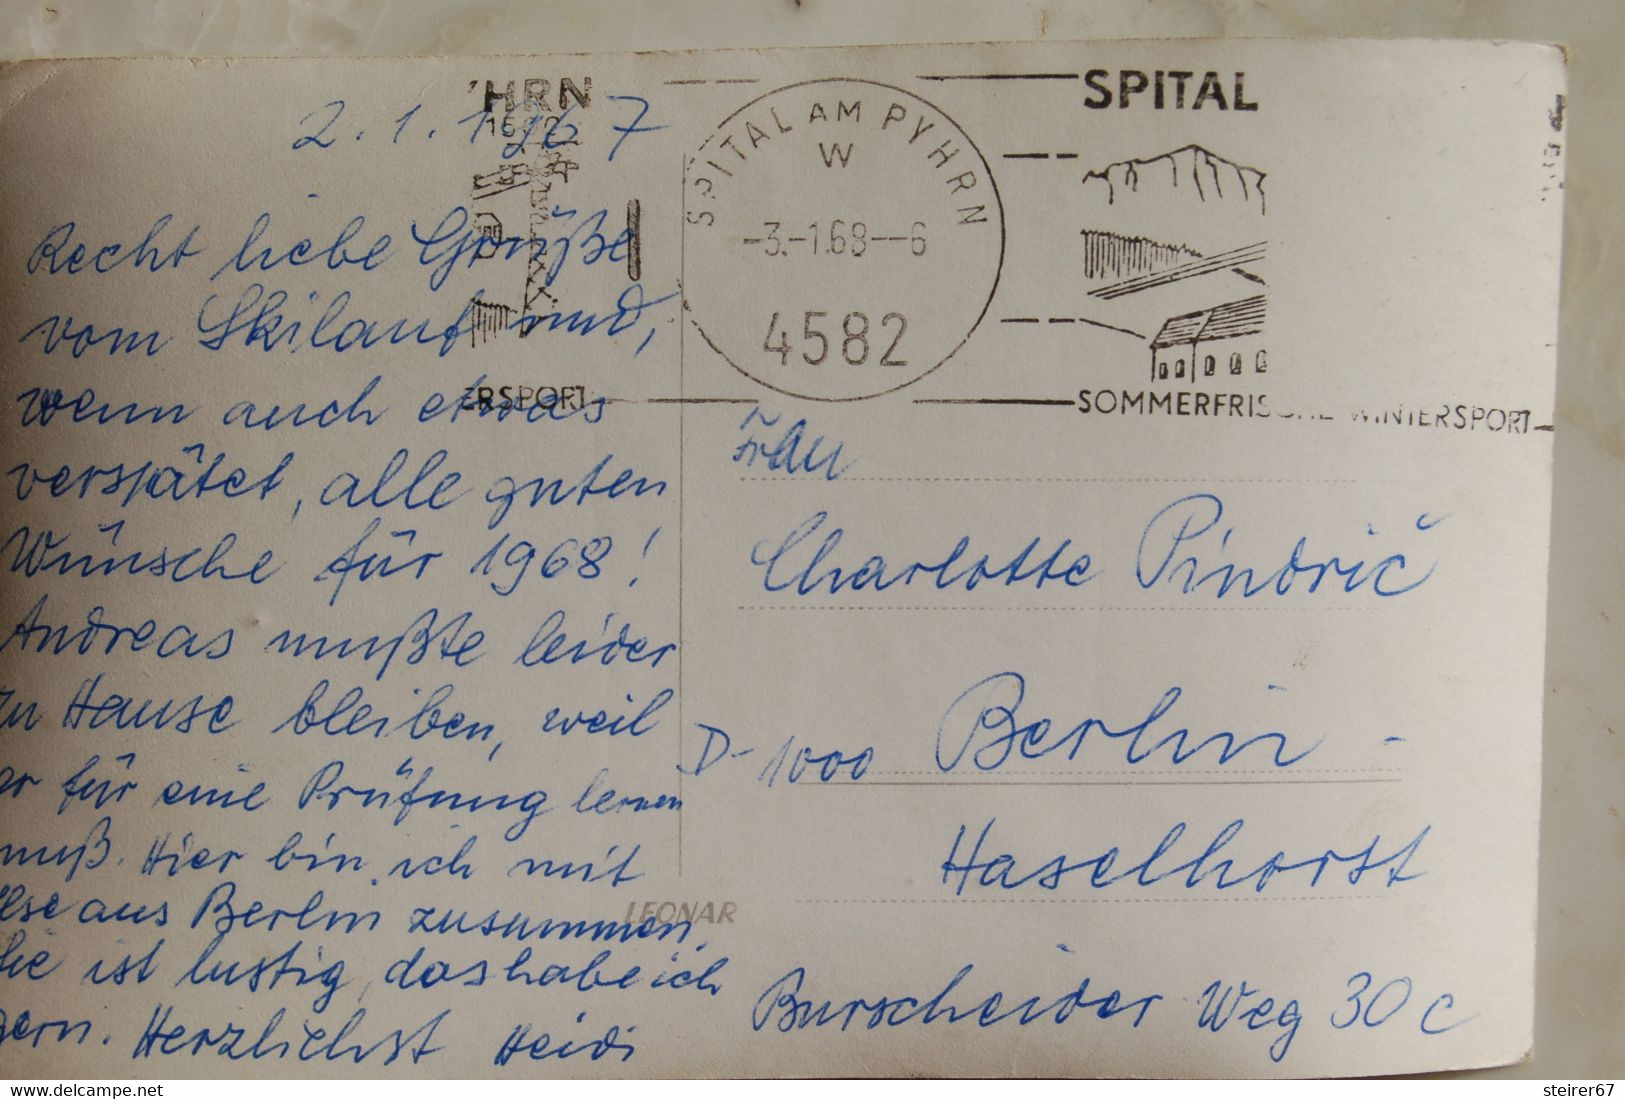 2.1.1967
Recht liebe Grüße
vom Skilauf und,
wenn auch etwas
verspätet, alle guten
Wünsche für 1968!
Andreas mußte leider
zu Hause bleiben, weil
er für eine Prüfung lernen
muß. Hier bin ich mit
Ilse aus Berlin zusammen.
Sie ist lustig, das habe ich
gern. Herzlichst Heidi
'HRN
ERSPORT
SPITAL AM PYHRN
W
-3.-1.68--6
4582
SPITAL
SOMMERFRISCHE WINTERSPORT
Frau
Charlotte Pindrič
D-1000 Berlin -
Haselhorst
Burscheider Weg 30c
LEONAR
www.delcampe.net
steirer67